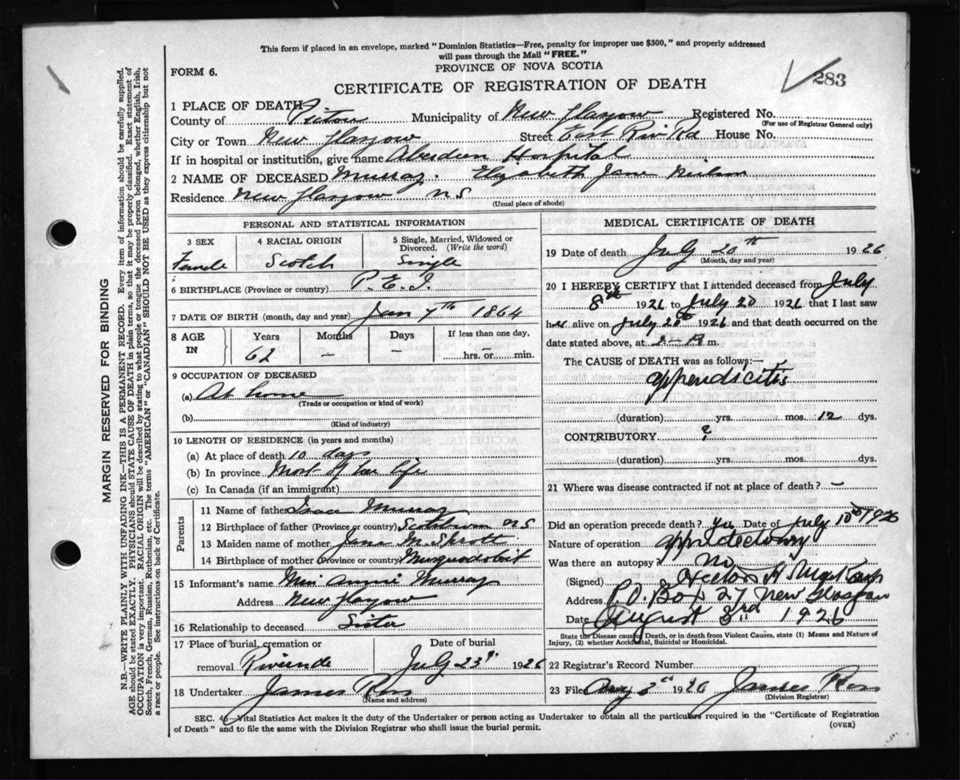 This form if placed in an envelope, marked "Dominion Statistics—Free, penalty for improper use $300," and properly addressed
will pass through the Mail "FREE."
PROVINCE OF NOVA SCOTIA
FORM 6.
CERTIFICATE OF REGISTRATION OF DEATH
283
1 PLACE OF DEATH
County of Pictou Municipality of New Glasgow Registered No.
(For use of Registrar General only)
City or Town New Glasgow Street East Riv Rd House No.
If in hospital or institution, give name Aberdeen Hospital
2 NAME OF DECEASED Murray. Elizabeth Jane
Residence New Glasgow N.S
(Usual place of abode)
PERSONAL AND STATISTICAL INFORMATION
3 SEX 4 RACIAL ORIGIN 5 Single, Married, Widowed or Divorced. (Write the word)
Female Scotch Single
6 BIRTHPLACE (Province or country) P.E.I.
7 DATE OF BIRTH (month, day and year) Jan 7th 1864
8 AGE IN Years Months Days If less than one day,
62 – – hrs. or – min.
9 OCCUPATION OF DECEASED
(a) At home
(Trade or occupation or kind of work)
(b)
(Kind of industry)
10 LENGTH OF RESIDENCE (in years and months)
(a) At place of death 10 days
(b) In province Most of her life
(c) In Canada (if an immigrant)
Parents
11 Name of father Isaac Murray
12 Birthplace of father (Province or country) Scotsburn N S
13 Maiden name of mother Jane M. Sprott
14 Birthplace of mother (Province or country) Musquodoboit
15 Informant's name Miss Annie Murray
Address New Glasgow
16 Relationship to deceased Sister
17 Place of burial, cremation or removal Date of burial
Riverside July 23rd 1926
18 Undertaker James Ross
(Name and address)
MEDICAL CERTIFICATE OF DEATH
19 Date of death July 20th 1926
(Month, day and year)
20 I HEREBY CERTIFY that I attended deceased from July
8th 1926 to July 20 1926 that I last saw
her alive on July 20th 1926 and that death occurred on the
date stated above, at m.
The CAUSE OF DEATH was as follows:—
appendicitis
(duration) yrs. mos. 12 dys.
CONTRIBUTORY ?
(duration) yrs. mos. dys.
21 Where was disease contracted if not at place of death? –
Did an operation precede death? Yes Date of July 10th 1926
Nature of operation appendectomy
Was there an autopsy? No
(Signed)
Address P.O. Box 27 New Glasgow
Date August 3rd 1926
State the Disease causing Death, or in death from Violent Causes, state (1) Means and Nature of
Injury, (2) whether Accidental, Suicidal or Homicidal.
22 Registrar's Record Number
23 Filed Aug 3rd 1926 James Ross
(Division Registrar)
SEC. 4 Vital Statistics Act makes it the duty of the Undertaker or person acting as Undertaker to obtain all the particulars required in the "Certificate of Registration
of Death" and to file the same with the Division Registrar who shall issue the burial permit.
(OVER)
MARGIN RESERVED FOR BINDING
N.B.—WRITE PLAINLY WITH UNFADING INK—THIS IS A PERMANENT RECORD. Every item of information should be carefully supplied.
AGE should be stated EXACTLY. PHYSICIANS should STATE CAUSE OF DEATH in plain terms, so that it may be properly classified. Exact statement of
OCCUPATION is very important. RACIAL ORIGIN will be described by stating to what people or tongue the deceased person belonged, whether English, Irish,
Scotch, French, German, Russian, Ruthenian, etc. The terms "AMERICAN" or "CANADIAN" SHOULD NOT BE USED as they express citizenship but not
a race or people. See instructions on back of Certificate.